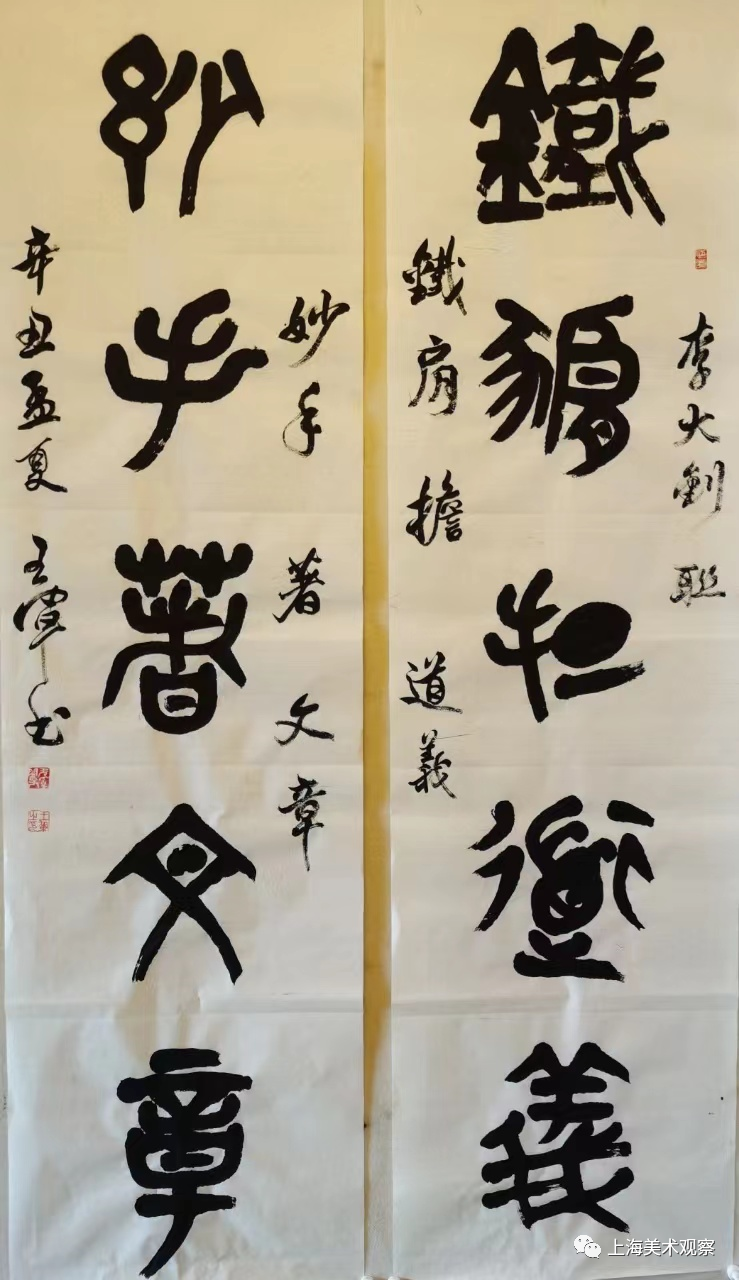 李大钊联
鐵肩担道義
鐵肩擔道義
妙手著文章
妙手著文章
辛丑孟夏 王军书
上海美术观察